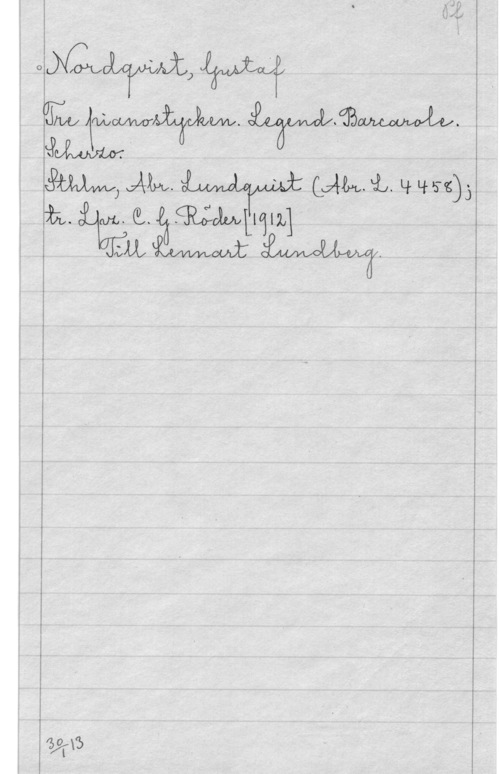 Pf
Nordqvist, Gustaf
Tre pianostycken. Legend. Barcarole.
Scherzo.
Sthlm, Abr. Lundquist (Abr. L. 4458);
tr. Lpz. C. G. Röder [1912]
Till Lennart Lundberg.
30/1 13